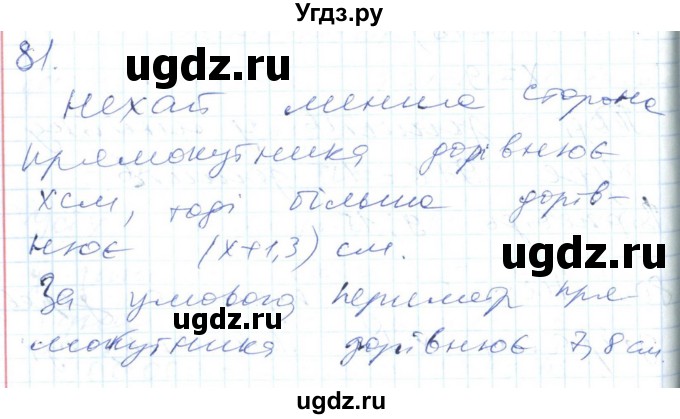 Угдз.ру
81.
ugdz.ru
ugdz.ru
Нехай менша сторона
прямокутника дорівнює
x см, тоді більша дорів-
ugdz.ru
нює (x+1,3) см.
За умовою периметр пря-
ugdz.ru
мокутника дорівнює 7,8 см.
ugdz.ru